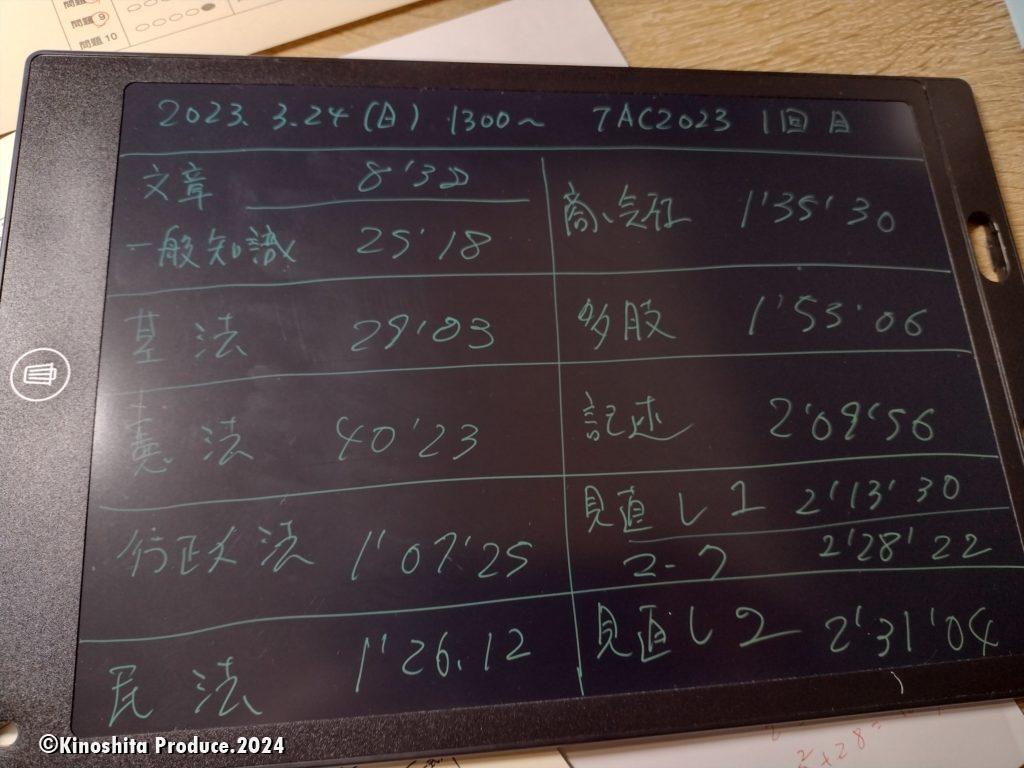 問題 9
問題 10
2023. 3.24 (日) 1300～ TAC2023 1回目
文章 8'32
一般知識 25'18
基法 29'03
憲法 40'23
行政法 1'07'25
民法 1'26.12
商、会社 1'35'30
多肢 1'53'06
記述 2'09'56
見直し1 2'13'30
マーク 2'28'22
見直し2 2'31'04
©Kinoshita Produce.2024